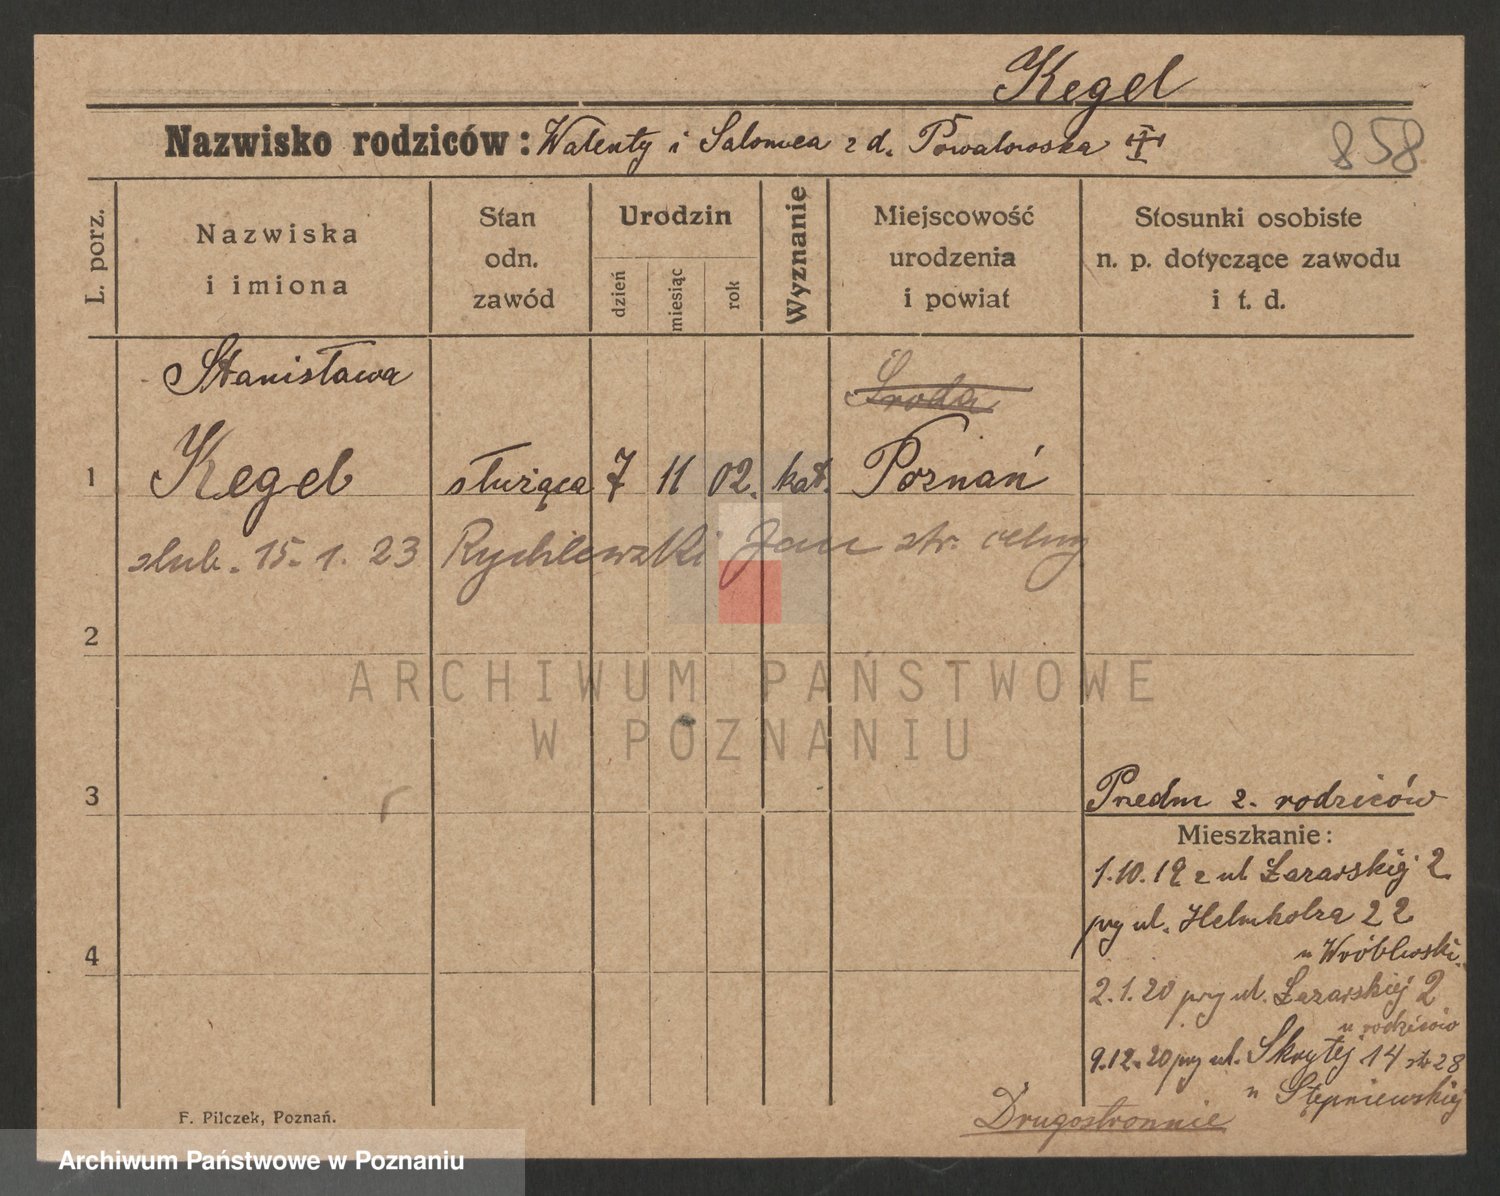 Kegel
Nazwisko rodziców: Walenty i Salomea z d. Powalowska
858
L. porz.
Nazwiska
i imiona
Stan
odn.
zawód
Urodzin
dzień
miesiąc
rok
Wyznanie
Miejscowość
urodzenia
i powiat
Stosunki osobiste
n. p. dotyczące zawodu
i t. d.
Stanisława
Środa
1 Kegel służąca 7 11 02. kat. Poznań
slub. 15. 1. 23 Rychlewski Jan str. celny
2
ARCHIWUM PAŃSTWOWE
W POZNANIU
3
Przedm z. rodziców
Mieszkanie:
1.10.19 z ul Łazarskiej 2
przy ul. Helmholza 22
u Wróblewski.
4
2.1.20 przy ul. Łazarskiej 2
u rodziców
9.12.20 przy ul. Skrytej 14 st 28
u Stępniewskiej
Drugostronnie
F. Pilczek, Poznań.
Archiwum Państwowe w Poznaniu